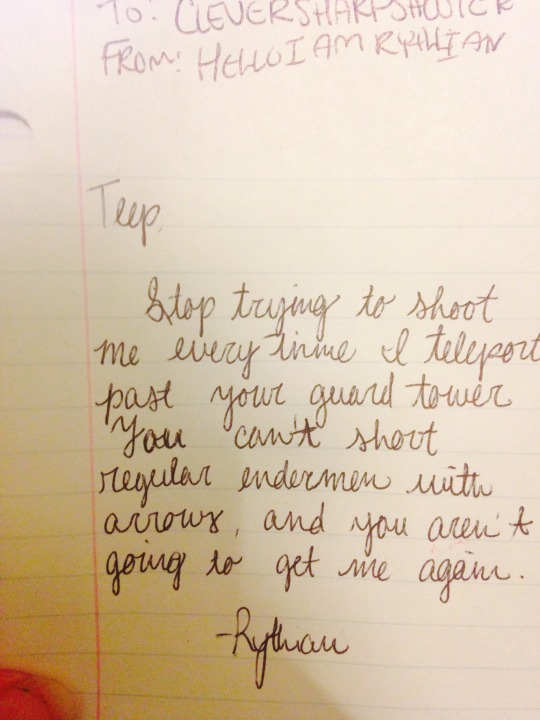 TO: CLEVERSHARPSHOOTER
FROM: HELLOIAMRYTHIAN
Teep,
Stop trying to shoot
me every time I teleport
past your guard tower
You can't shoot
regular endermen with
arrows, and you aren't
going to get me again.
-Rythian